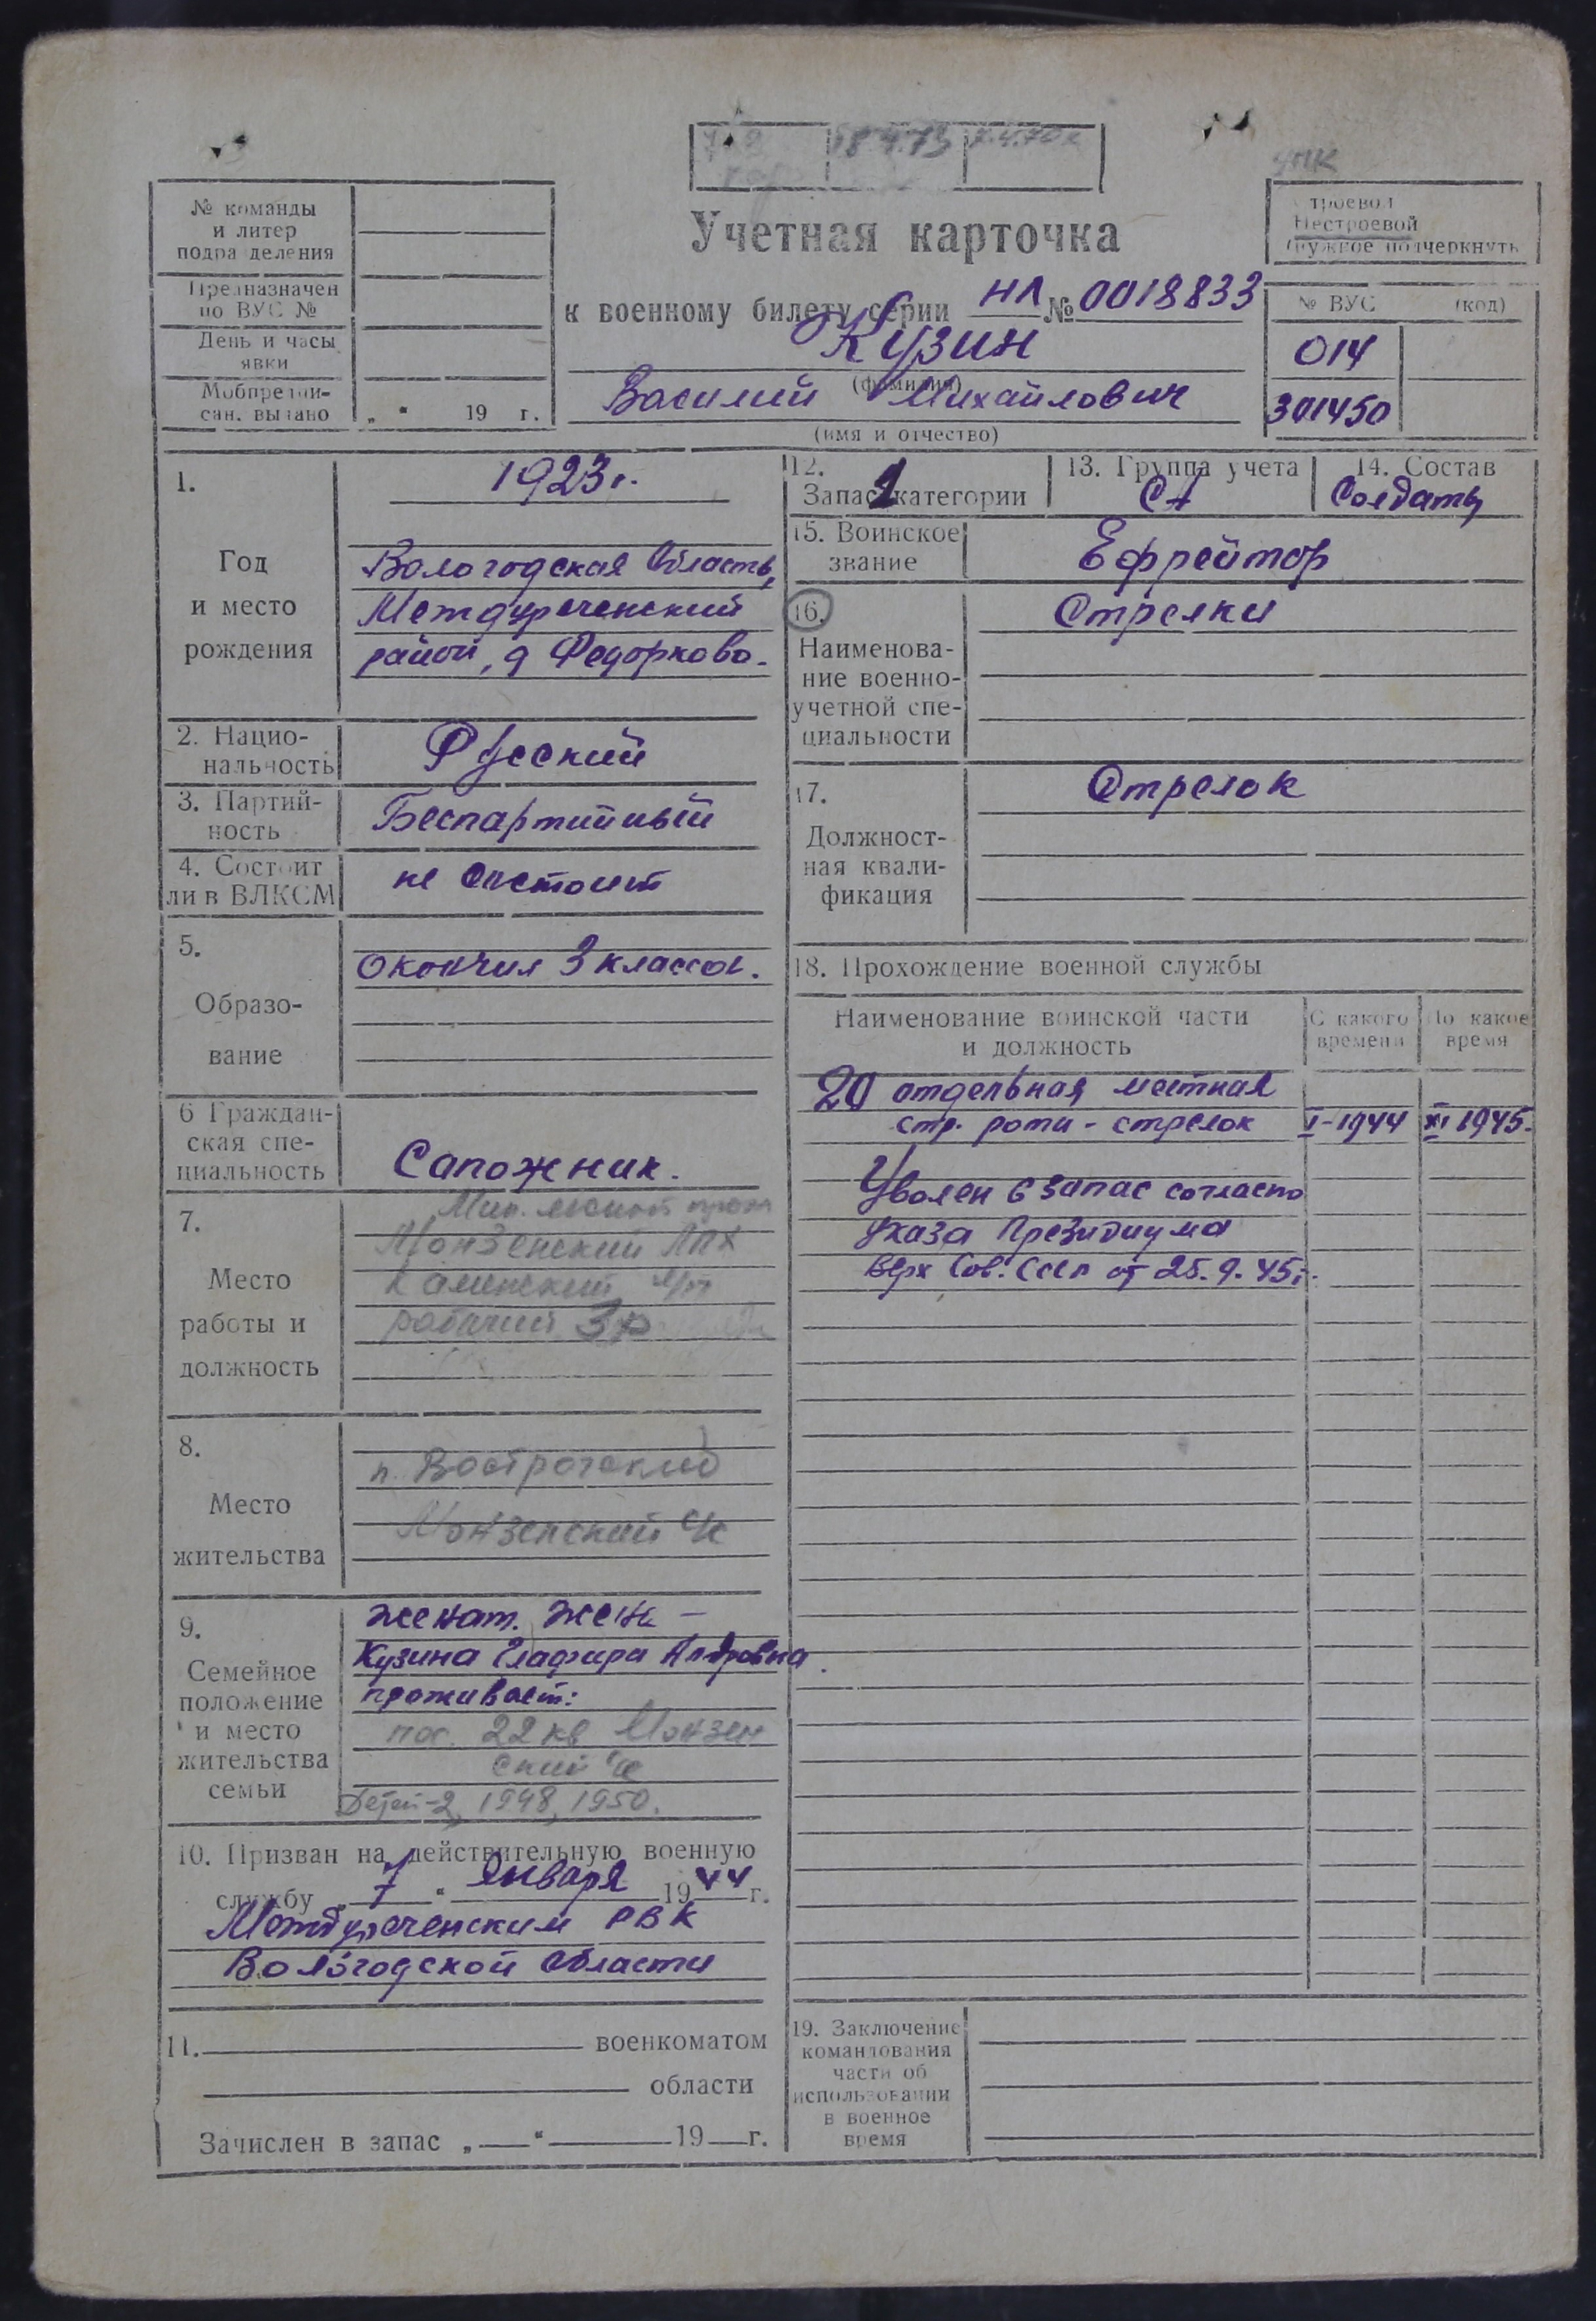 18.4.73
УПК
№ команды
и литер
подразделения
Предназначен
по ВУС №
День и часы
явки
Мобпредпи-
сан. выдано „ “ 19 г.
Учетная карточка
к военному билету серии НЛ № 0018833
Кузин
(фамилия)
Василий Михайлович
(имя и отчество)
троевой
Нестроевой
(нужное подчеркнуть
№ ВУС (код)
014
301450
1. 1923 г.
Год
и место
рождения
Вологодская область,
Междуреченский
район, д Федорково.
2. Нацио-
нальность
Русский
3. Партий-
ность
Беспартийный
4. Состоит
ли в ВЛКСМ
не состоит
5.
Образо-
вание
Окончил 3 класса.
6 Граждан-
ская спе-
циальность
Сапожник.
7.
Место
работы и
должность
Мин. лесной пром
Монзенский ЛПХ
Каменский л/п
рабочий 3р
8.
Место
жительства
п. Вострогский
Монзенский с/с
9.
Семейное
положение
и место
жительства
семьи
женат. жена –
Кузина Глафира Ал-дровна.
проживает:
пос. 22 кв Монзен
ский с/с
Детей-2, 1948, 1950.
10. Призван на действительную военную
службу „ 7 “ января 1944 г.
Междуреченским РВК
Вологодской области
11. военкоматом
области
Зачислен в запас „ “ 19 г.
12.
Запас 2 категории
13. Группа учета
СА
14. Состав
Солдаты
15. Воинское
звание
Ефрейтор
16.
Наименова-
ние военно-
учетной спе-
циальности
Стрелки
17.
Должност-
ная квали-
фикация
Стрелок
18. Прохождение военной службы
Наименование воинской части
и должность
С какого
времени
По какое
время
20 отдельная местная
стр. рота - стрелок I-1944 XI 1945.
Уволен в запас согласно
Указа Президиума
Верх Сов. СССР от 25.9.45г.
19. Заключение
командования
части об
использовании
в военное
время